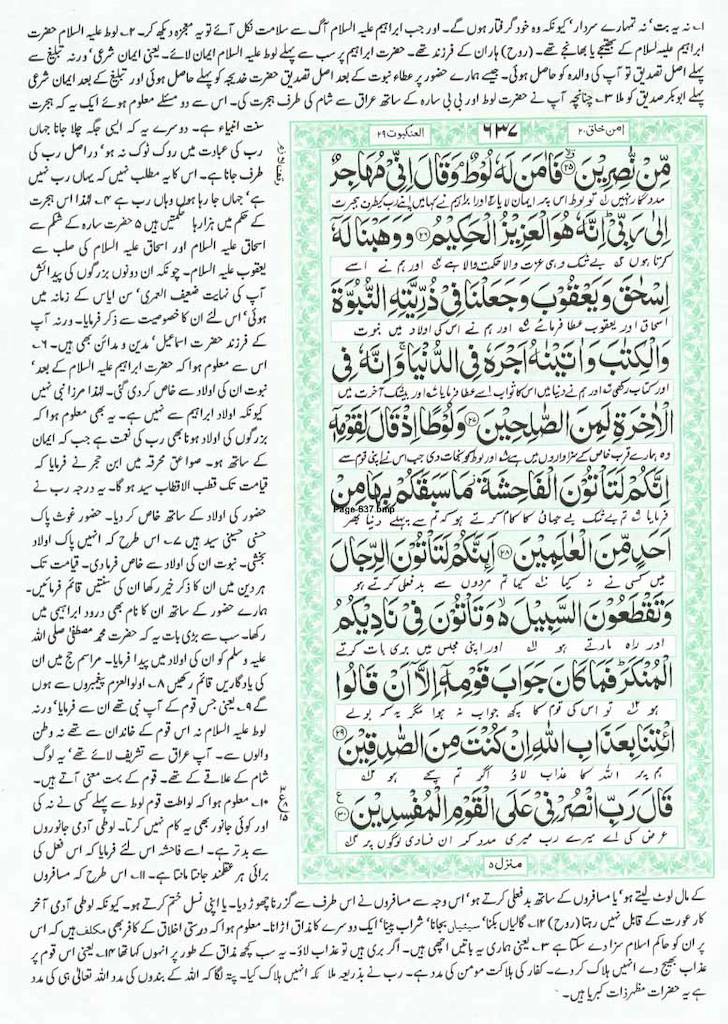 ۱؎ نہ یہ بت‘ نہ تمہارے سردار‘ کیونکہ وہ خود گرفتار ہوں گے۔ اور جب ابراہیم علیہ السلام آگ سے سلامت نکل آئے تو یہ معجزہ دیکھ کر۔ ۲؎ لوط علیہ السلام حضرت
ابراہیم علیہ السلام کے بھتیجے یا بھانجے تھے۔ (روح) ہاران کے فرزند تھے۔ حضرت ابراہیم پر سب سے پہلے لوط علیہ السلام ایمان لائے۔ یعنی ایمان شرعی‘ ورنہ تبلیغ سے
پہلے اصل تصدیق تو آپ کی والدہ کو حاصل ہوئی۔ جیسے ہمارے حضور پر عطاء نبوت کے بعد اصل تصدیق حضرت خدیجہ کو پہلے حاصل ہوئی اور تبلیغ کے بعد ایمان شرعی
پہلے ابوبکر صدیق کو ملا ۳؎ چنانچہ آپ نے حضرت لوط اور بی بی سارہ کے ساتھ عراق سے شام کی طرف ہجرت کی۔ اس سے دو مسئلے معلوم ہوئے ایک یہ کہ ہجرت
امن خلق ۲۰
۶۳۷
العنکبوت ۲۹
مِّنْ نّٰصِرِیْنَ ۲۵ فَاٰمَنَ لَهٗ لُوْطٌ وَقَالَ اِنِّیْ مُهَاجِرٌ
مددگار نہیں تو لوط اس پر ایمان لایا اور ابراہیم نے کہا میں اپنے رب کی طرف ہجرت
اِلٰی رَبِّیْ اِنَّهٗ هُوَ الْعَزِیْزُ الْحَكِیْمُ ۲۶ وَوَهَبْنَا لَهٗ
کرتا ہوں بے شک وہی عزت والا حکمت والا ہے اور ہم نے اسے
اِسْحٰقَ وَیَعْقُوْبَ وَجَعَلْنَا فِیْ ذُرِّیَّتِهِ النُّبُوَّةَ
اسحاق اور یعقوب عطا فرمائے اور ہم نے اس کی اولاد میں نبوت
وَالْكِتٰبَ وَاٰتَیْنٰهُ اَجْرَهٗ فِی الدُّنْیَا وَاِنَّهٗ فِی
اور کتاب رکھی اور ہم نے دنیا میں اس کا ثواب اسے عطا فرمایا اور بیشک آخرت میں
الْاٰخِرَةِ لَمِنَ الصّٰلِحِیْنَ ۲۷ وَلُوْطًا اِذْ قَالَ لِقَوْمِهٖ
وہ ہمارے قرب خاص کے سزاواروں میں ہے اور لوط کو نجات دی جب اس نے اپنی قوم سے
اِنَّكُمْ لَتَاْتُوْنَ الْفَاحِشَةَ مَا سَبَقَكُمْ بِهَا مِنْ
فرمایا تم بے شک بے حیائی کا کام کرتے ہو کہ تم سے پہلے دنیا بھر
Page-637.bmp
اَحَدٍ مِّنَ الْعٰلَمِیْنَ ۲۸ اَئِنَّكُمْ لَتَاْتُوْنَ الرِّجَالَ
میں کسی نے نہ کیا کیا تم مردوں سے بدفعلی کرتے ہو
وَتَقْطَعُوْنَ السَّبِیْلَ وَتَاْتُوْنَ فِیْ نَادِیْكُمُ
اور راہ مارتے ہو اور اپنی مجلس میں بری بات کرتے
الْمُنْكَرَ فَمَا كَانَ جَوَابَ قَوْمِهٖۤ اِلَّاۤ اَنْ قَالُوا
ہو تو اس کی قوم کا کچھ جواب نہ ہوا مگر یہ کہ بولے
ائْتِنَا بِعَذَابِ اللّٰهِ اِنْ كُنْتَ مِنَ الصّٰدِقِیْنَ ۲۹
ہم پر اللہ کا عذاب لاؤ اگر تم سچے ہو
قَالَ رَبِّ انْصُرْنِیْ عَلَی الْقَوْمِ الْمُفْسِدِیْنَ ۳۰
عرض کی اے میرے رب میری مدد کر ان فسادی لوگوں پر
منزل ۵
سنت انبیاء ہے۔ دوسرے یہ کہ ایسی جگہ چلا جانا جہاں
رب کی عبادت میں روک ٹوک نہ ہو‘ دراصل رب کی
طرف جانا ہے۔ اس کا یہ مطلب نہیں کہ یہاں رب نہیں
ہے‘ جہاں جا رہا ہوں وہاں رب ہے ۴؎ لہٰذا اس ہجرت
کے حکم میں ہزارہا حکمتیں ہیں ۵؎ حضرت سارہ کے شکم سے
اسحاق علیہ السلام اور اسحاق علیہ السلام کی صلب سے
یعقوب علیہ السلام۔ چونکہ ان دونوں بزرگوں کی پیدائش
آپ کی نہایت ضعیف العمری‘ سن ایاس کے زمانہ میں
ہوئی‘ اس لئے ان کا خصوصیت سے ذکر فرمایا۔ ورنہ آپ
کے فرزند حضرت اسماعیل‘ مدین و مدائن بھی ہیں۔ ۶؎
اس سے معلوم ہوا کہ حضرت ابراہیم علیہ السلام کے بعد‘
نبوت ان کی اولاد سے خاص کر دی گئی۔ لہٰذا مرزا نبی نہیں
کیونکہ اولاد ابراہیم سے نہیں ہے۔ یہ بھی معلوم ہوا کہ
بزرگوں کی اولاد ہونا بھی رب کی نعمت ہے جب کہ ایمان
کے ساتھ ہو۔ صواعق محرقہ میں ابن حجر نے فرمایا کہ
قیامت تک قطب الاقطاب سید ہو گا۔ یہ درجہ رب نے
حضور کی اولاد کے ساتھ خاص کر دیا۔ حضور غوث پاک
حسنی حسینی سید ہیں ۷؎ اس طرح کہ انہیں پاک اولاد
بخشی۔ نبوت ان کی اولاد سے خاص فرما دی۔ قیامت تک
ہر دین میں ان کا ذکر خیر رکھا ان کی سنتیں قائم فرمائیں۔
ہمارے حضور کے ساتھ ان کا نام بھی درود ابراہیمی میں
رکھا۔ سب سے بڑی بات یہ کہ حضرت محمد مصطفیٰ صلی اللہ
علیہ وسلم کو ان کی اولاد میں پیدا فرمایا۔ مراسم حج میں ان
کی یادگاریں قائم رکھیں ۸؎ اولوالعزم پیغمبروں سے ہوں
گے ۹؎ یعنی جس قوم کے آپ نبی تھے ان سے فرمایا‘ ورنہ
لوط علیہ السلام نہ اس قوم کے خاندان سے تھے نہ وطن
والوں سے۔ آپ عراق سے تشریف لائے تھے‘ یہ لوگ
شام کے علاقے کے تھے۔ قوم کے بہت معنی آتے ہیں۔
۱۰؎ معلوم ہوا کہ لواطت قوم لوط سے پہلے کسی نے نہ کی
اور کوئی جانور بھی یہ کام نہیں کرتا۔ لوطی آدمی جانوروں
سے بدتر ہے۔ اسے فاحشہ اس لئے فرمایا کہ اس فعل کی
برائی ہر عقلمند جانتا مانتا ہے۔ ۱۱؎ اس طرح کہ مسافروں
کے مال لوٹ لیتے ہو‘ یا مسافروں کے ساتھ بدفعلی کرتے ہو‘ اس وجہ سے مسافروں نے اس طرف سے گزرنا چھوڑ دیا۔ یا اپنی نسل ختم کرتے ہو۔ کیونکہ لوطی آدمی آخر
کار عورت کے قابل نہیں رہتا (روح) ۱۲؎ گالیاں بکنا‘ سیٹیاں بجانا‘ شراب پینا‘ ایک دوسرے کا مذاق اڑانا۔ معلوم ہوا کہ درستی اخلاق کے کافر بھی مکلف ہیں کہ اس
پر ان کو حاکم اسلام سزا دے سکتا ہے ۱۳؎ یعنی ہماری یہ باتیں اچھی ہیں۔ اگر بری ہیں تو عذاب لاؤ۔ یہ سب کچھ مذاق کے طور پر انہوں نے کہا تھا ۱۴؎ یعنی اس قوم پر
عذاب بھیج دے انہیں ہلاک کر دے۔ کفار کی ہلاکت مومن کی مدد ہے۔ رب نے بذریعہ ملائکہ انہیں ہلاک کیا۔ پتہ لگا کہ اللہ کے بندوں کی مدد اللہ تعالیٰ ہی کی مدد
ہے یہ حضرات مظہر ذات کبریا ہیں۔